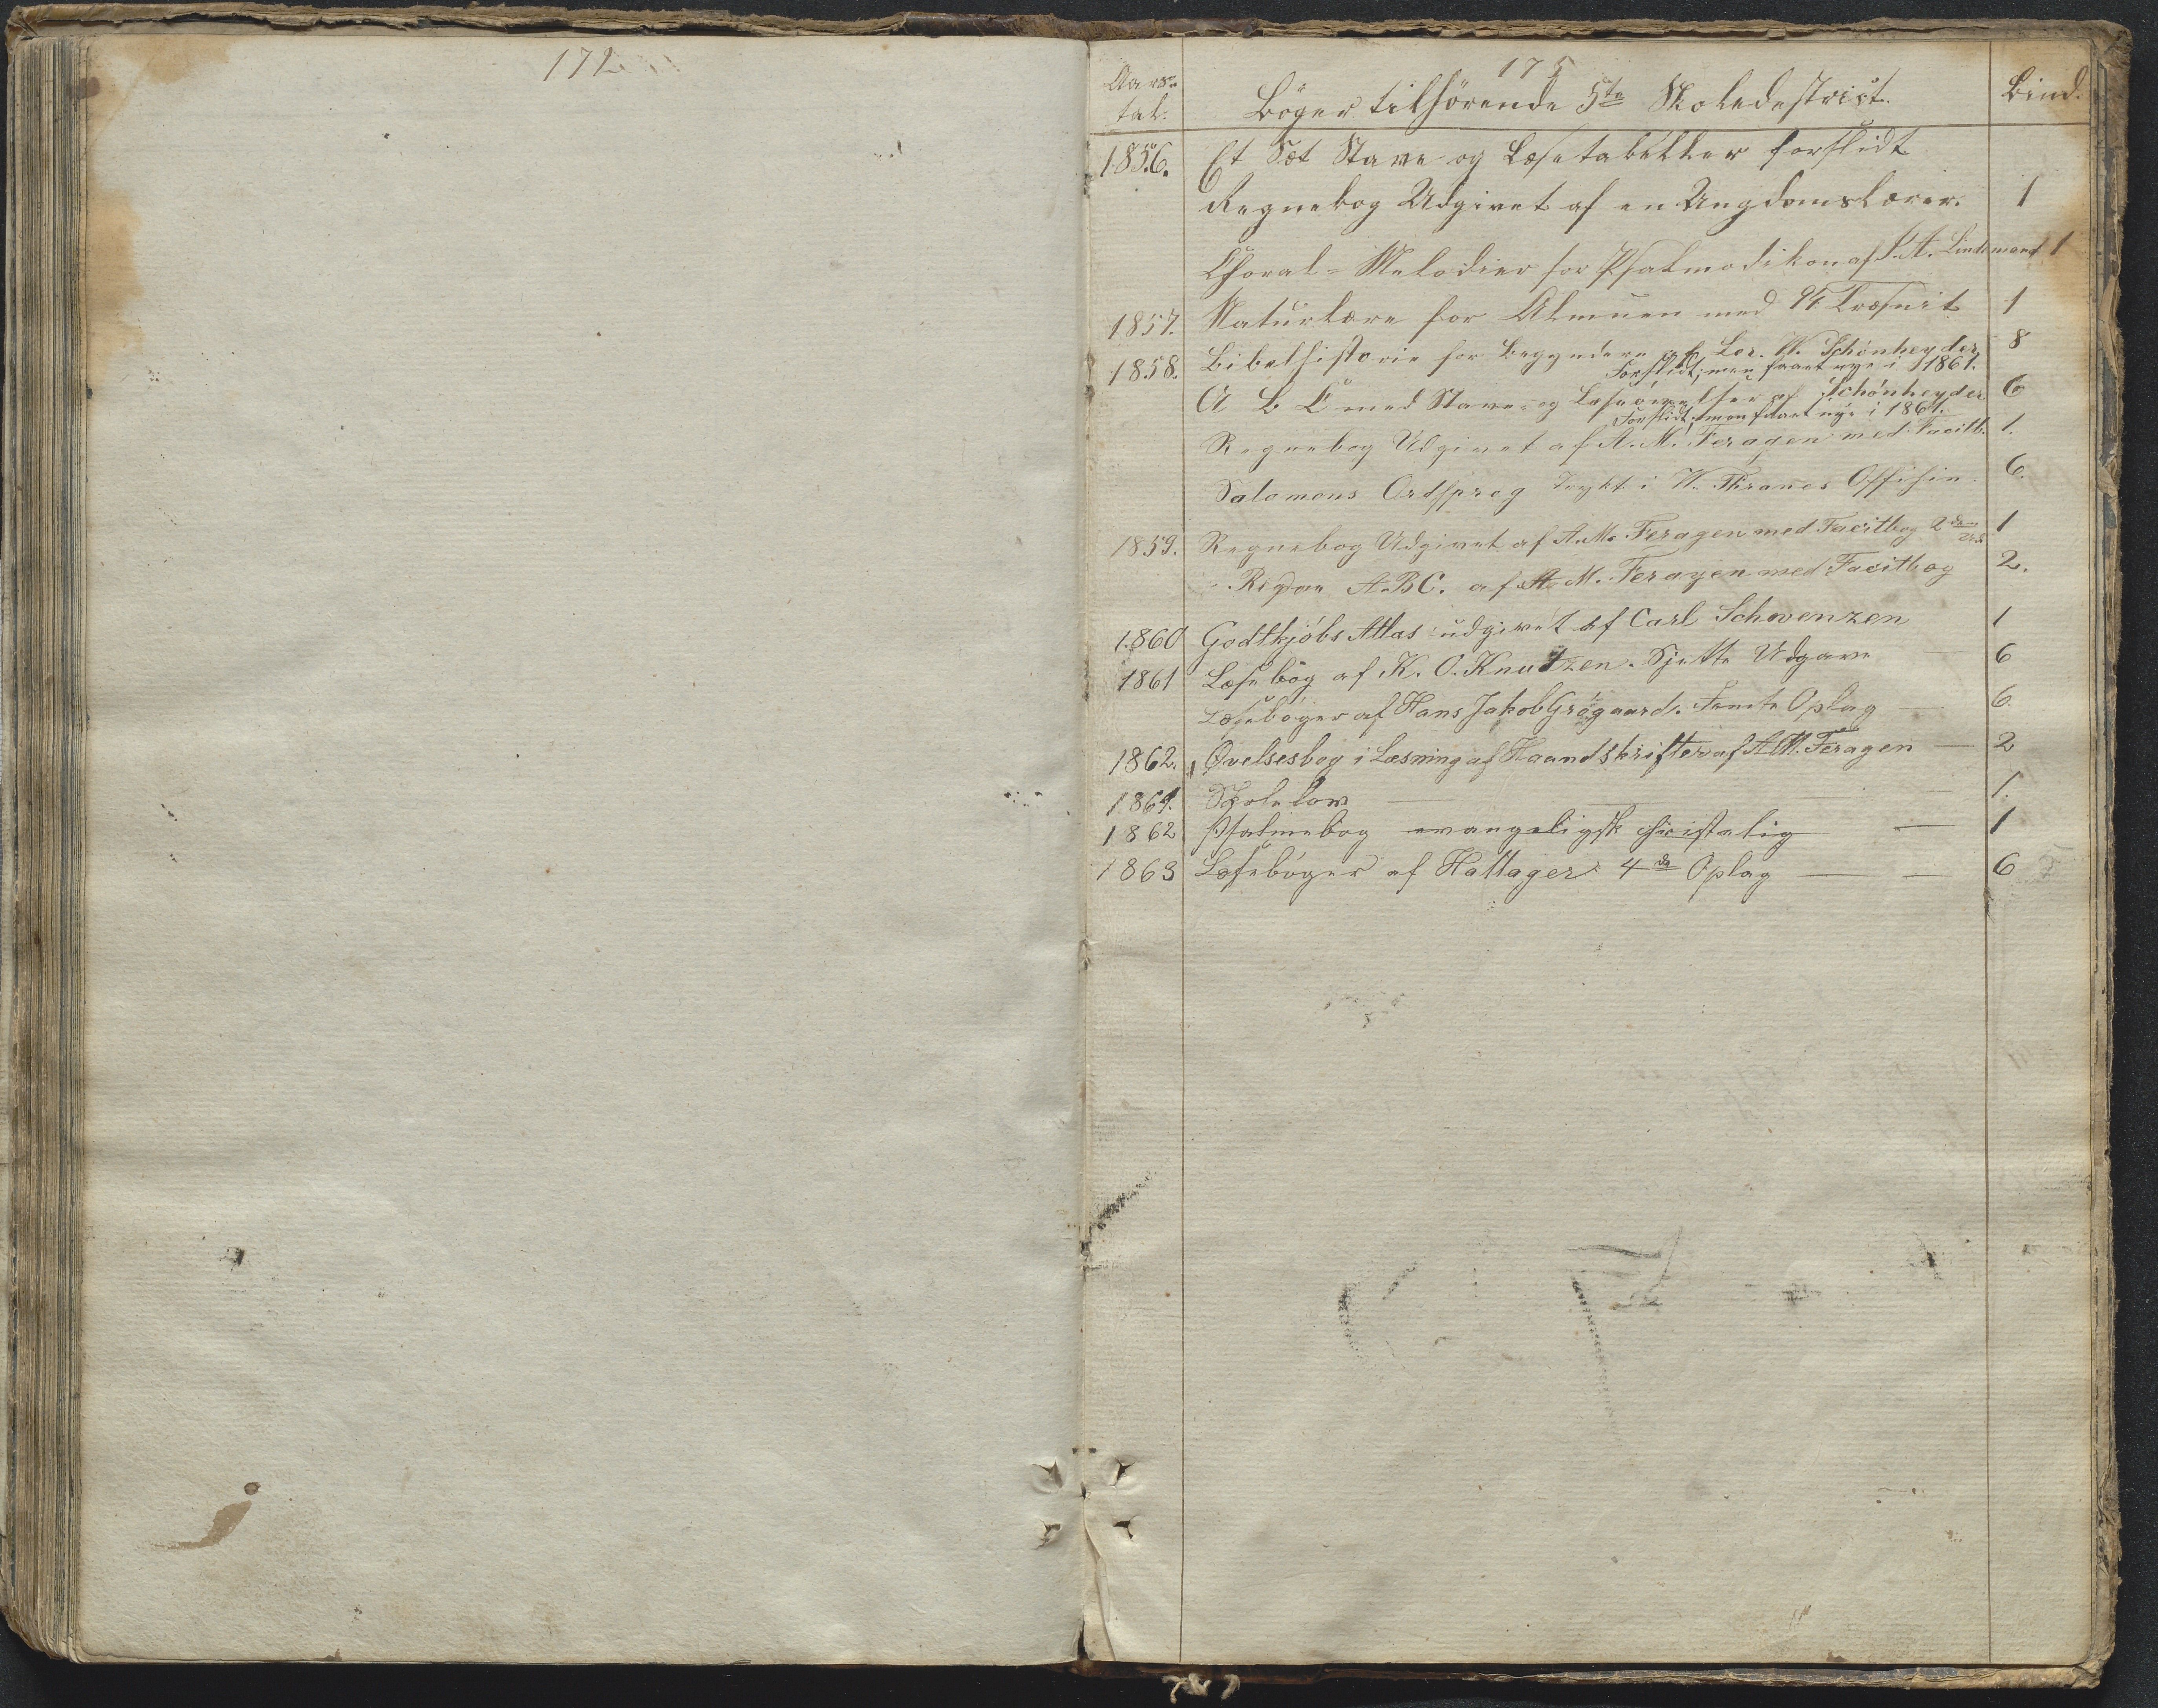 172
175
Aars-
tal.
Bøger tilhørende 5te Skoledestrict.
Bind.
1856. Et Sæt Stave og Læsetabeller forslidt
Regnebog Udgivet af en Ungdomslærer. 1
Choral-Melodier for Psalmodikon af Lindemand 1
1857. Naturlære for Almuen med Træsnit 1
1858. Bibelhistorie for Begyndere af Schönheyder 8
Forslidt; men faaet nye i 1861.
A B C med Stave- og Læseøvelser af Schönheyder 6
Forslidt; men faaet nye i 1861.
Regnebog Udgivet af A. M. Feragen med Facitb. 1.
Salomons Ordsprog Trykt i W. Thranes Offisin. 6.
1859. Regnebog Udgivet af A. M. Feragen med Facitbog 2den Ud. 1
A. B. C. af A. M. Feragen med Facitbog 2.
1860 Godtkjøbs Atlas udgivet af Carl Schwenzen 1
1861 Læsebog af K. O. Knutzen. Sjette Udgave 6
Læsebøger af Hans Jakob Grøgaard. Femte Oplag — 6
1862. Øvelsesbog i Læsning af Haandskrifter af A. M. Feragen — 2
1861. Skolelov — 1.
1862 Psalmebog evangeligsk christelig — 1
1863 Læsebøger af Hallager 4de Oplag — — 6